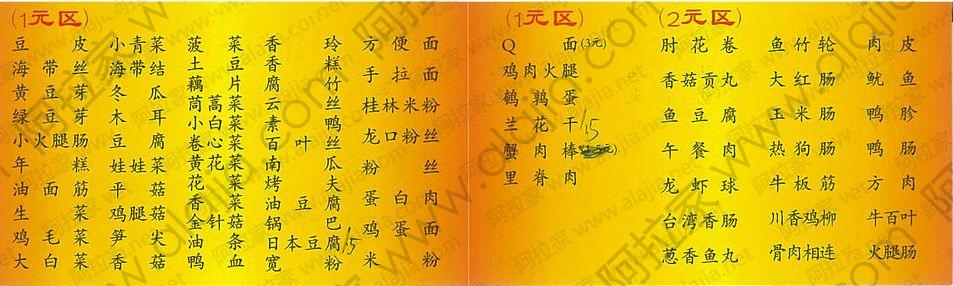 (1元区)
豆皮
海带丝
黄豆芽
绿豆芽
小火腿肠
年糕
油面筋
生菜
鸡毛菜
大白菜
小青菜
海带结
冬瓜
木耳
豆腐
娃娃菜
平菇
鸡腿菇
笋尖
香菇
菠菜
土豆
藕片
茼蒿菜
小白菜
卷心菜
黄花菜
花菜
香菜
金针菇
油条
鸭血
香玲
香糕
腐竹
云丝
素鸭
百叶丝
南瓜
烤夫
油豆腐
锅巴
日本豆腐 1.5
宽粉
方便面
手拉面
桂林米粉
龙口粉丝
粉丝
蛋白肉
鸡蛋面
米粉
(1元区)
Q面(3元)
鸡肉火腿
鹌鹑蛋
兰花干 1.5
蟹肉棒
里脊肉
(2元区)
肘花卷
香菇贡丸
鱼豆腐
午餐肉
龙虾球
台湾香肠
葱香鱼丸
鱼竹轮
大红肠
玉米肠
热狗肠
牛板筋
川香鸡柳
骨肉相连
肉皮
鱿鱼
鸭胗
鸭肠
方肉
牛百叶
火腿肠
阿拉家
www.alajia.net